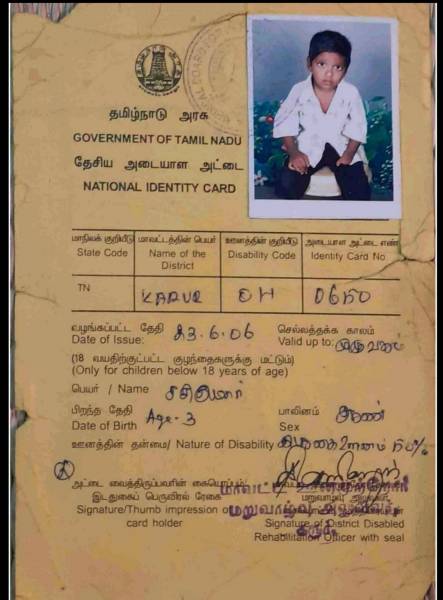 தமிழ்நாடு அரசு
GOVERNMENT OF TAMIL NADU
தேசிய அடையாள அட்டை
NATIONAL IDENTITY CARD
மாநிலக் குறியீடு மாவட்டத்தின் பெயர் ஊனத்தின் குறியீடு அடையாள அட்டை எண்
State Code Name of the District Disability Code Identity Card No
TN KARUR OH
வழங்கப்பட்ட தேதி 23.6.06 செல்லத்தக்க காலம்
Date of Issue: Valid up to:
(18 வயதிற்குட்பட்ட குழந்தைகளுக்கு மட்டும்)
(Only for children below 18 years of age)
பெயர் / Name சசிகுமார்
பிறந்த தேதி Age-3 பாலினம் ஆண்
Date of Birth Sex
ஊனத்தின் தன்மை/ Nature of Disability
அட்டை வைத்திருப்பவரின் கையொப்பம்/ மாவட்ட
இடதுகைப் பெருவிரல் ரேகை மறுவாழ்வு அலுவலர்
Signature/Thumb impression of Signature of District Disabled
card holder Rehabilitation Officer with seal